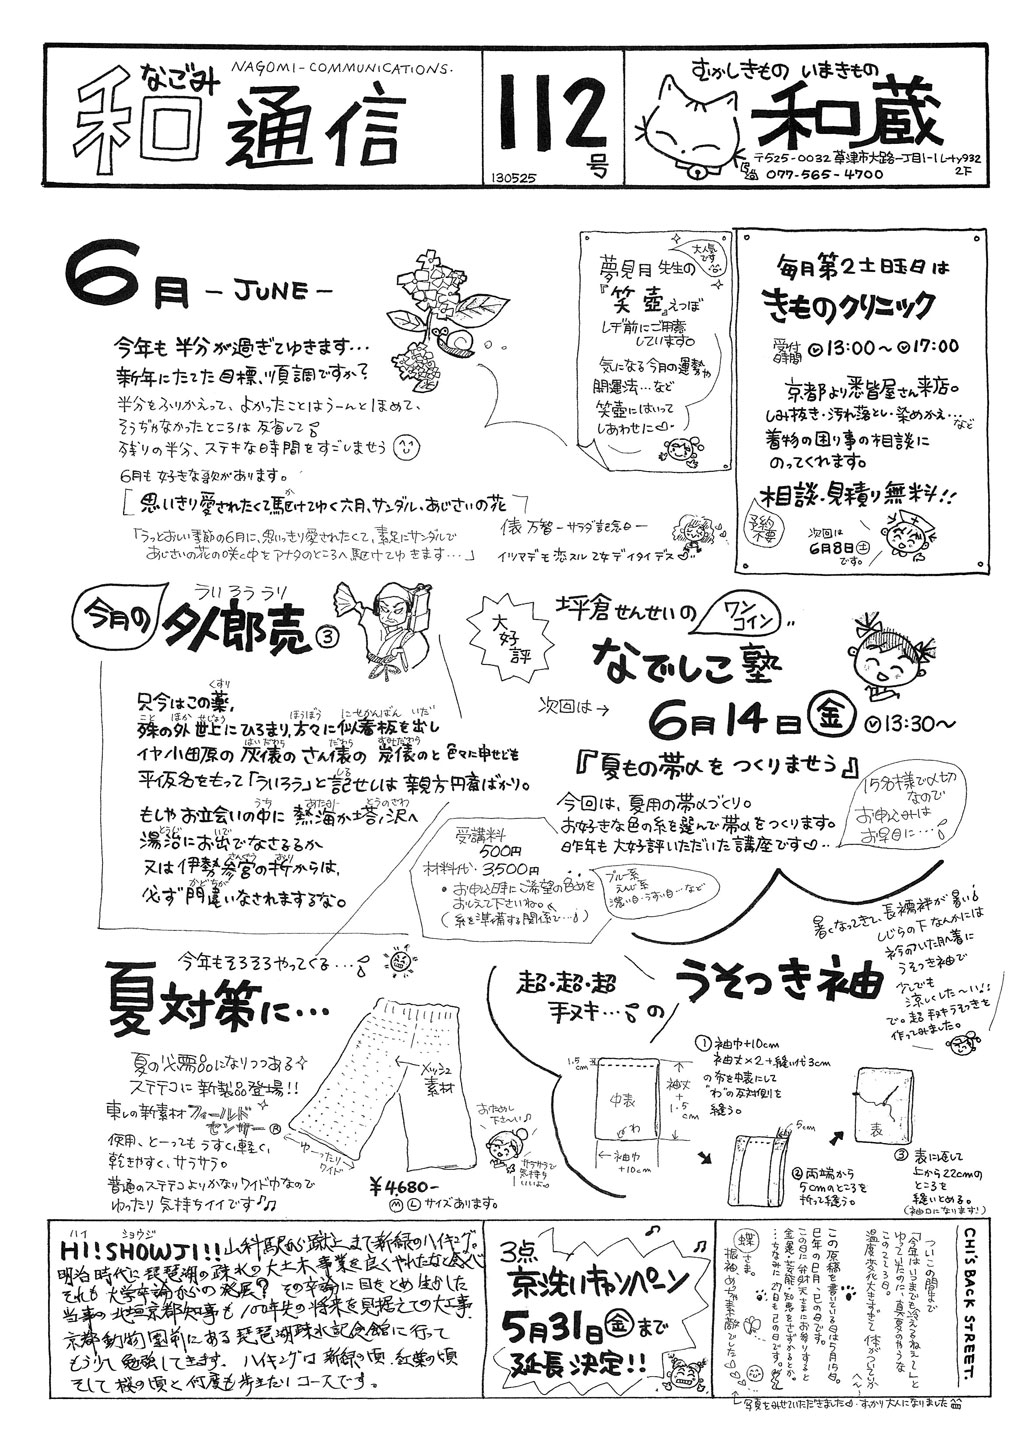 和通信
なごみ
NAGOMI-COMMUNICATIONS.
112号
130525
むかしきもの いまきもの
和蔵
〒525-0032 草津市大路一丁目1-1 レイヤ932 2F
077-565-4700
6月 -JUNE-
今年も 半分が過ぎてゆきます…
新年にたてた目標、順調ですか？
半分をふりかえって、よかったことはうーんとほめて、
そうぢゃなかったところは 反省して
残りの半分、ステキな時間をすごしませう
6月も 好きな歌があります。
「思いきり愛されたくて駆けてゆく六月、サンダル、あじさいの花」
俵 万智 -サラダ記念日-
「うっとおしい季節の6月に、思いっきり愛されたくて、素足にサンダルで
あじさいの花の咲く中を アナタのところへ 駆けてゆきます…」
イツマデモ恋スル乙女デイタイデス
大人気です
夢見月先生の
『笑壺』えつぼ
レヂ前にご用意
しています。
気になる今月の運勢や
開運法…など
笑壺にはいって
しあわせに♡
毎月第2土曜日は
きものクリニック
受付時間 13:00〜17:00
京都より悉皆屋さん来店。
しみ抜き・汚れ落とし・染めかえ…など
着物の困り事の相談に
のってくれます。
相談・見積り無料!!
予約不要
次回は
6月8日(土)
です。
今月の 外郎売 ③
ういろううり
只今はこの薬、
殊の外 世上にひろまり、方々に似看板を出し
イヤ小田原の 灰俵の さん俵の 炭俵のと 色々に申せども
平仮名をもって「ういろう」と記せしは 親方円斎ばかり。
もしやお立会いの中に 熱海か塔ノ沢へ
湯治にお出でなさるるか
又は伊勢参宮の折からは、
必ず門違いなされまするな。
大好評
坪倉せんせいの
ワンコイン
なでしこ塾
次回は→ 6月14日(金) 13:30〜
『夏もの帯〆をつくりませう』
今回は、夏用の帯〆づくり。
お好きな色の糸を選んで帯〆をつくります。
昨年も 大好評いただいた講座です♡
15名様で〆切
なので
お申込みは
お早目に…
受講料
500円
材料代・3500円
・お申込時にご希望の色めを
おしえて下さいね。
(糸を準備する関係で…)
ブルー系
えんじ系
濃い目・うすい目…など
今年もそろそろやってくる…
夏対策に…
夏の必需品になりつつある
ステテコに 新製品登場!!
東レの新素材 フィールドセンサー®
使用、とーってもうすく、軽く、
乾きやすく、サラサラ。
普通のステテコよりかなりワイド巾なので
ゆったり 気持ちイイです♪♫
メッシュ素材
ゆーったりワイド
おためし下さい♪
サラサラで気持ちいいよ
¥4680-
Ⓜ Ⓛ サイズあります。
超・超・超
手ヌキ…の うそつき袖
暑くなってきて、長襦袢が暑い
しじらの下なんかには
衿の付いた肌着に
うそつき袖で
少しでも
涼しくした〜い!!
で。超手ヌキうそつきを
作ってみました。
① 袖巾+10cm
袖丈×2+縫い代3cm
の布を中表にして
"わ"の反対側を
縫う。
1.5cm
中表
わ
袖丈+1.5cm
←袖巾+10cm
5cm
② 両端から
5cmのところを
折って縫う。
表
③ 表に返して
上から22cmの
ところを
縫いとめる。
(袖口になります!)
ハイ ショウジ
HI! SHOWJI!! 山科駅から蹴上まで新緑のハイキング。
明治時代に琵琶湖の疎水の大土木事業を良くやれたなと食べ
それも大学卒論からの発展？ その卒論に目をとめ生かした
当時の北垣京都知事も100年先の将来を見据えての大事
京都動物園前にある琵琶湖疎水記念館に行って
もう少し勉強してきます。ハイキングは新緑の頃、紅葉の頃
そして桜の頃と何度も歩きたいコースです。
3点
京洗いキャンペーン
5月31日(金)まで
延長決定!!
CHI'S BACK STREET.
ついこの間まで
「今年はいつまでも冷えるねぇ〜」と
ゆってたのに、真夏のやうな
この2、3日。
温度変化大きすぎて 体がついていかへん〜
この原稿を書いている日は5月15日。
巳年の巳月・巳の日です。
この日に弁財天さまにお参りすると
金運・芸能・知恵をさずかるとか。
…ちなみに27日も己の日です。
蝶さま。
振袖、めちゃ素敵でした
写真をみせていただきました♡ すっかり大人になりました